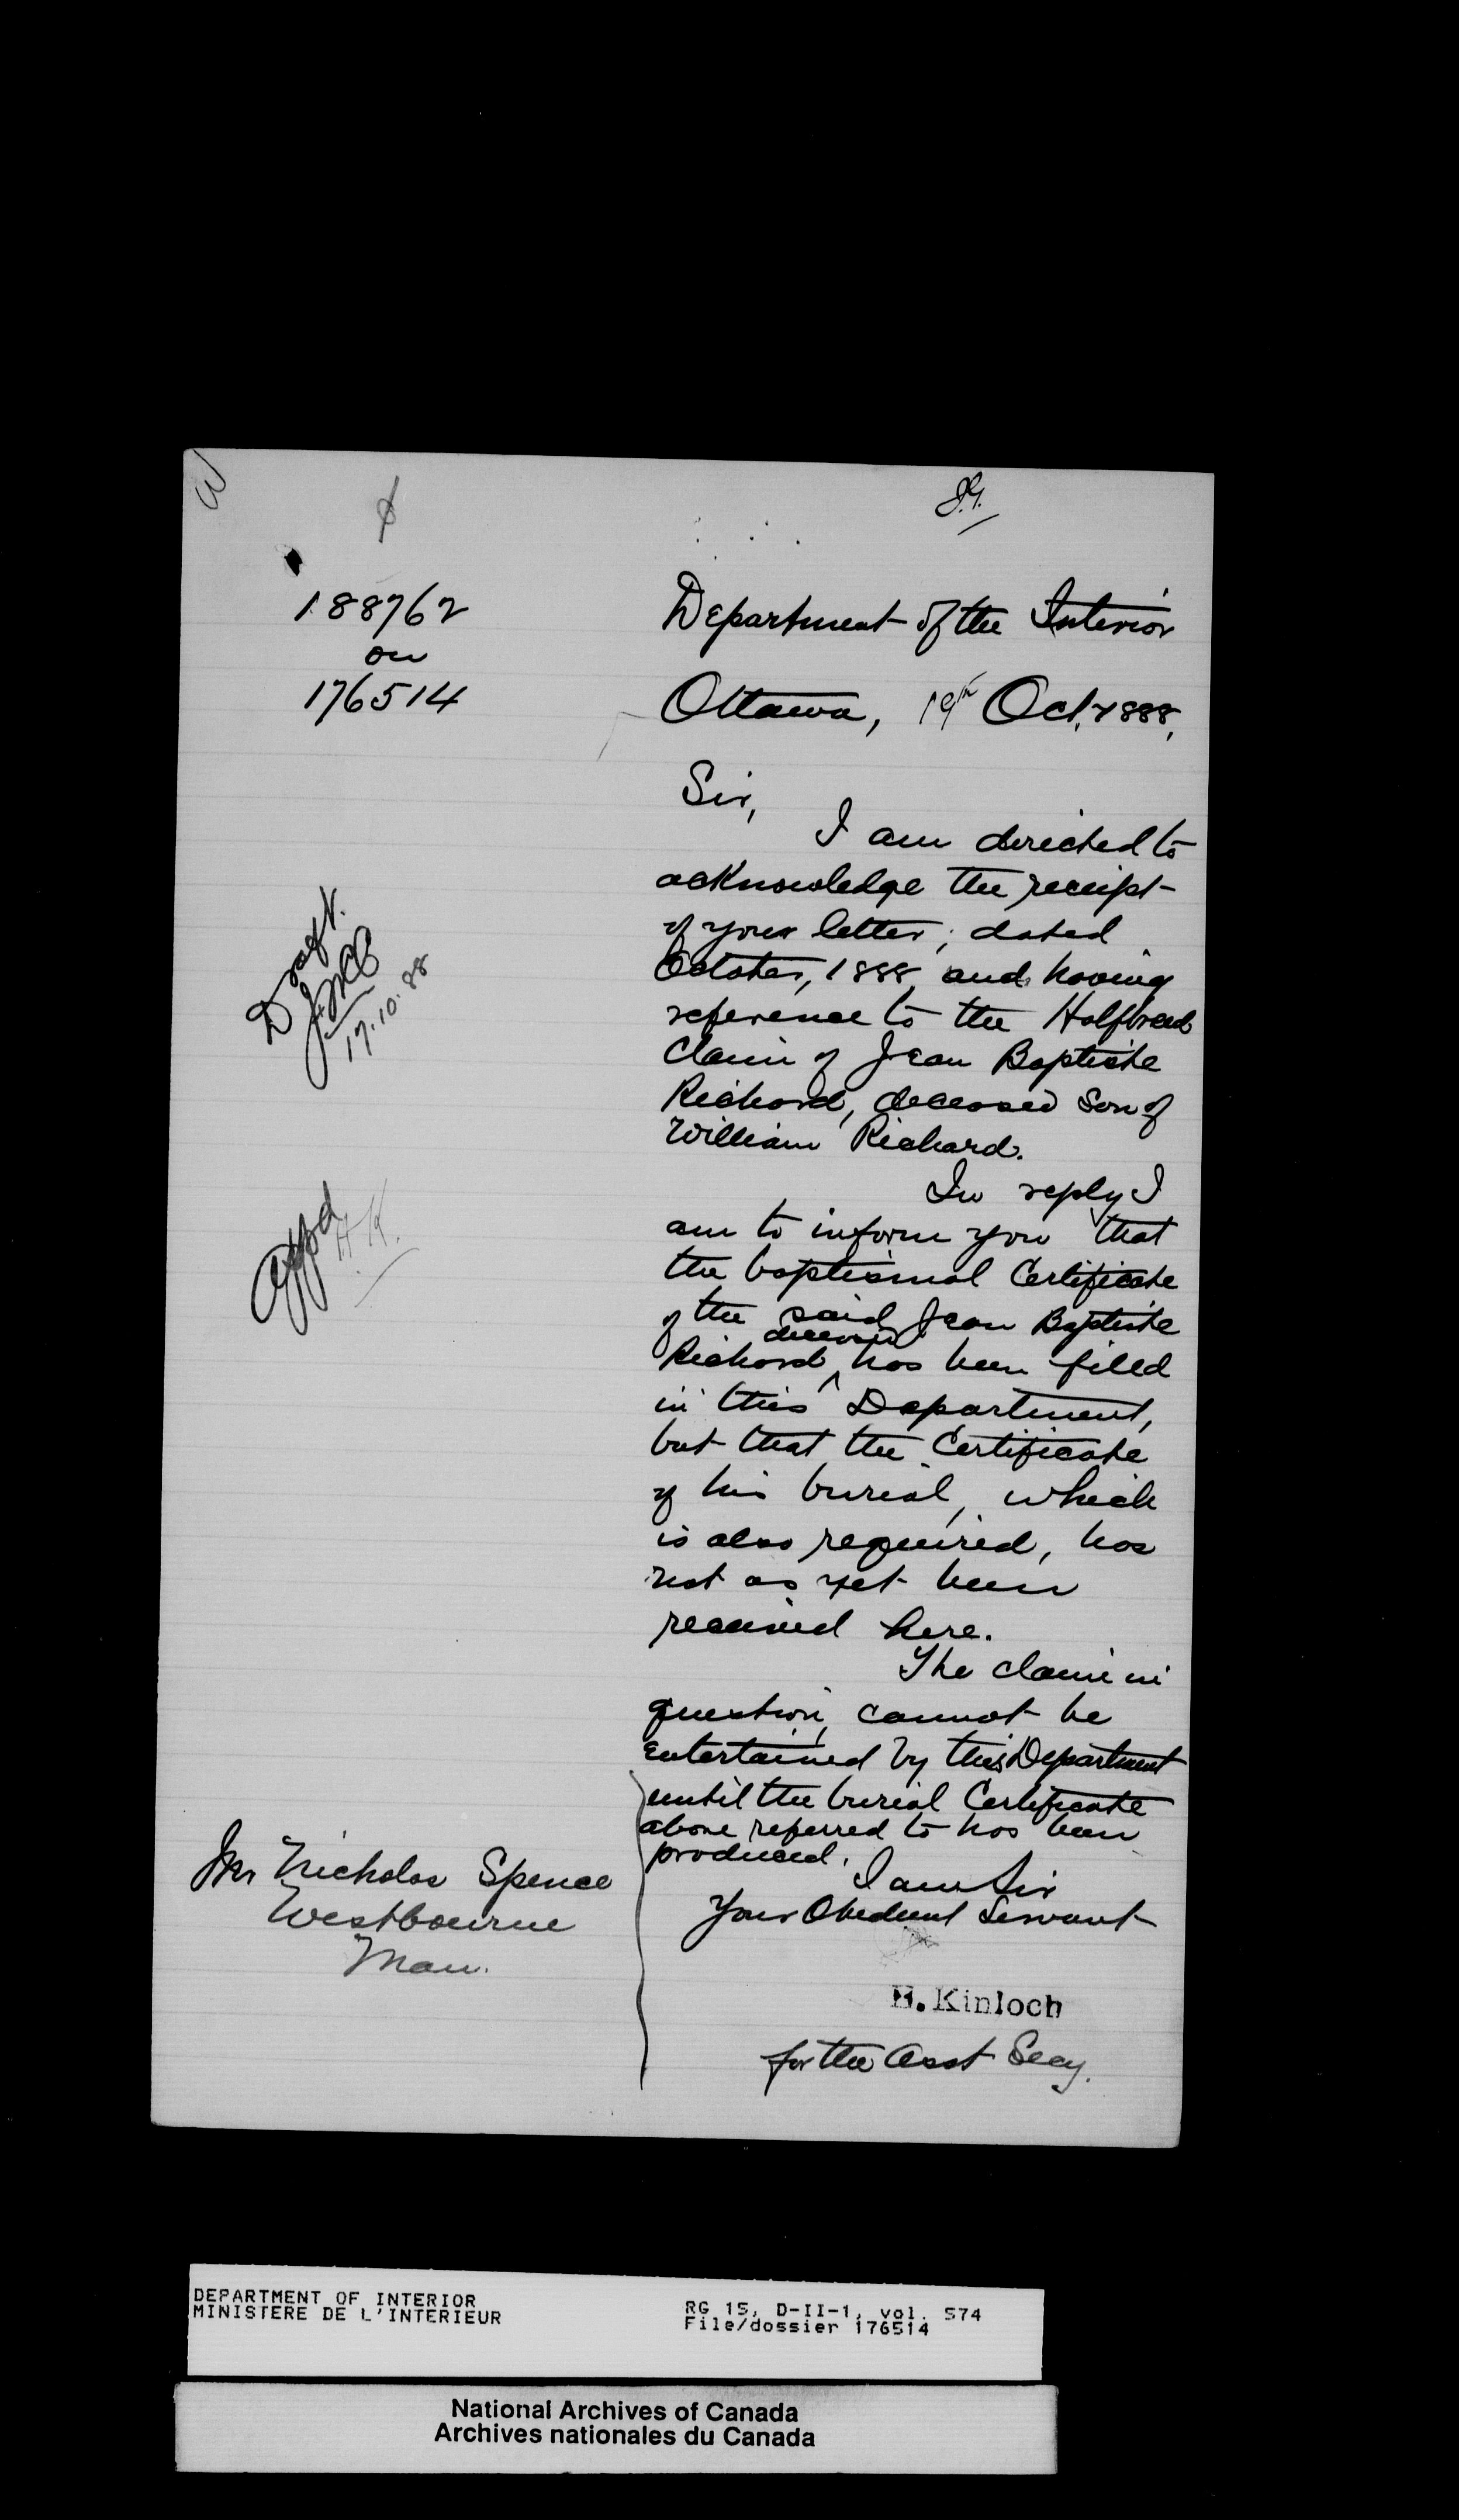 188762
on
176514
Department of the Interior
Ottawa, 19th Oct, 1888,
Sir,
I am directed to
acknowledge the receipt
of your letter, dated
October, 1888, and having
reference to the Halfbreed
Claim of Jean Baptiste
Richard, deceased son of
William Richard.
In reply I
am to inform you that
the baptismal Certificate
of the said Jean Baptiste
deceased
Richard ^ has been filled
in this Department,
but that the Certificate
of his burial, which
is also required, has
not as yet been
received here.
The claim in
question, cannot be
entertained by this Department
until the burial Certificate
above referred to has been
produced.
I am Sir
Your Obedient Servant
H. Kinloch
for the Asst Secy.
Draft.
17.10.88
Appd
H.K.
Mr Nicholas Spence
Westbourne
Man.
DEPARTMENT OF INTERIOR
MINISTERE DE L'INTERIEUR
RG 15, D-II-1, vol. 574
File/dossier 176514
National Archives of Canada
Archives nationales du Canada